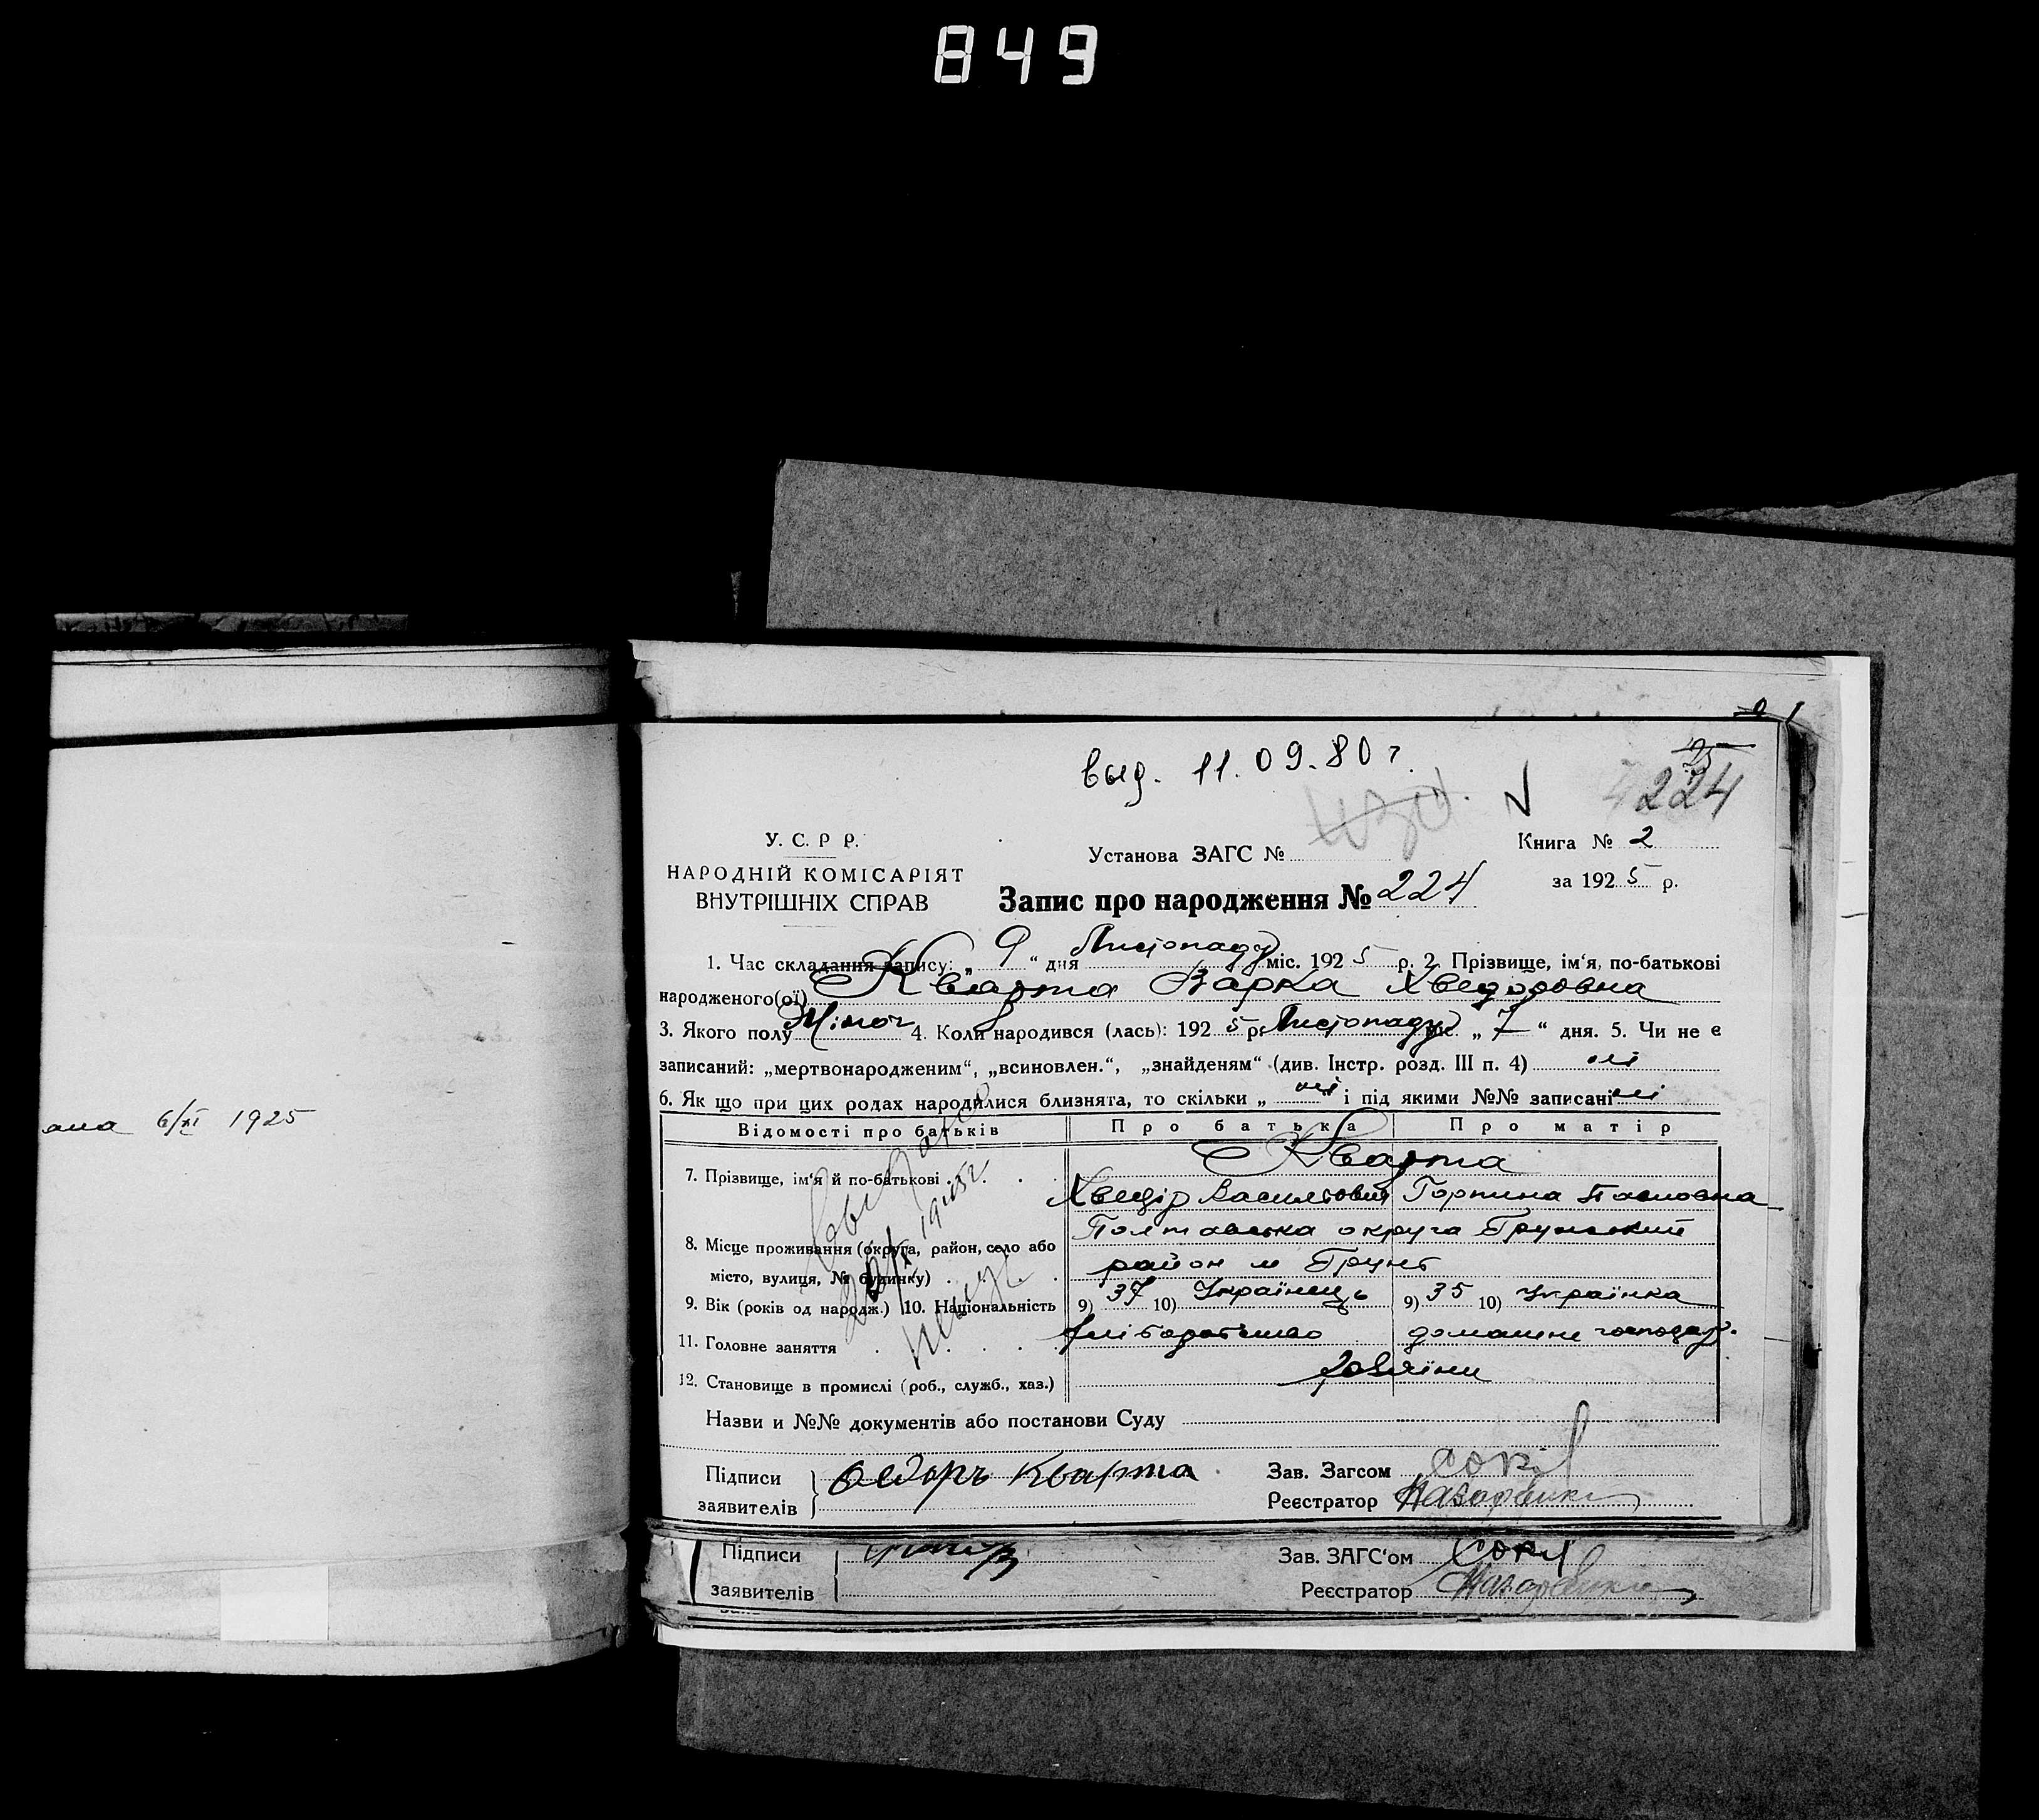 849
выд. 11.09.80 г.
224
У. С. Р Р.
НАРОДНІЙ КОМІСАРІЯТ
ВНУТРІШНІХ СПРАВ
Установа ЗАГС №
Книга № 2
за 1925 р.
Запис про народження № 224
1. Час складання запису: „ 9 “ дня Листопаду міс. 1925 р. 2. Прізвище, ім'я, по-батькові
народженого(ої) Кварта Варка Хведоровна
3. Якого полу Жіноч 4. Коли народився (лась): 1925 р. Листопаду „ 7 “ дня. 5. Чи не є
записаний: „мертвонародженим“, „всиновлен.“, „знайденям“ (див. Інстр. розд. III п. 4) ні
6. Як що при цих родах народилися близнята, то скільки „ ні “ і під якими №№ записані ні
Відомості про батьків Про батька Про матір
7. Прізвище, ім'я й по-батькові Кварта
Хведір Васильович Горпина Павловна
8. Місце проживання (округа, район, село або
місто, вулиця, № будинку)
Полтавська округа Грунський
район м Грунь
9. Вік (років од народж.) 10. Національність 9) 37 10) Українець 9) 35 10) Українка
11. Головне заняття хліборобство домашнє господар.
12. Становище в промислі (роб., служб., хаз.) хазяїни
Назви и №№ документів або постанови Суду
Підписи
заявителів
Федоръ Кварта
Зав. Загсом
Реєстратор Назаренко
Підписи
заявителів
Зав. ЗАГС'ом
Реєстратор Назаренко
ана 6/XI 1925